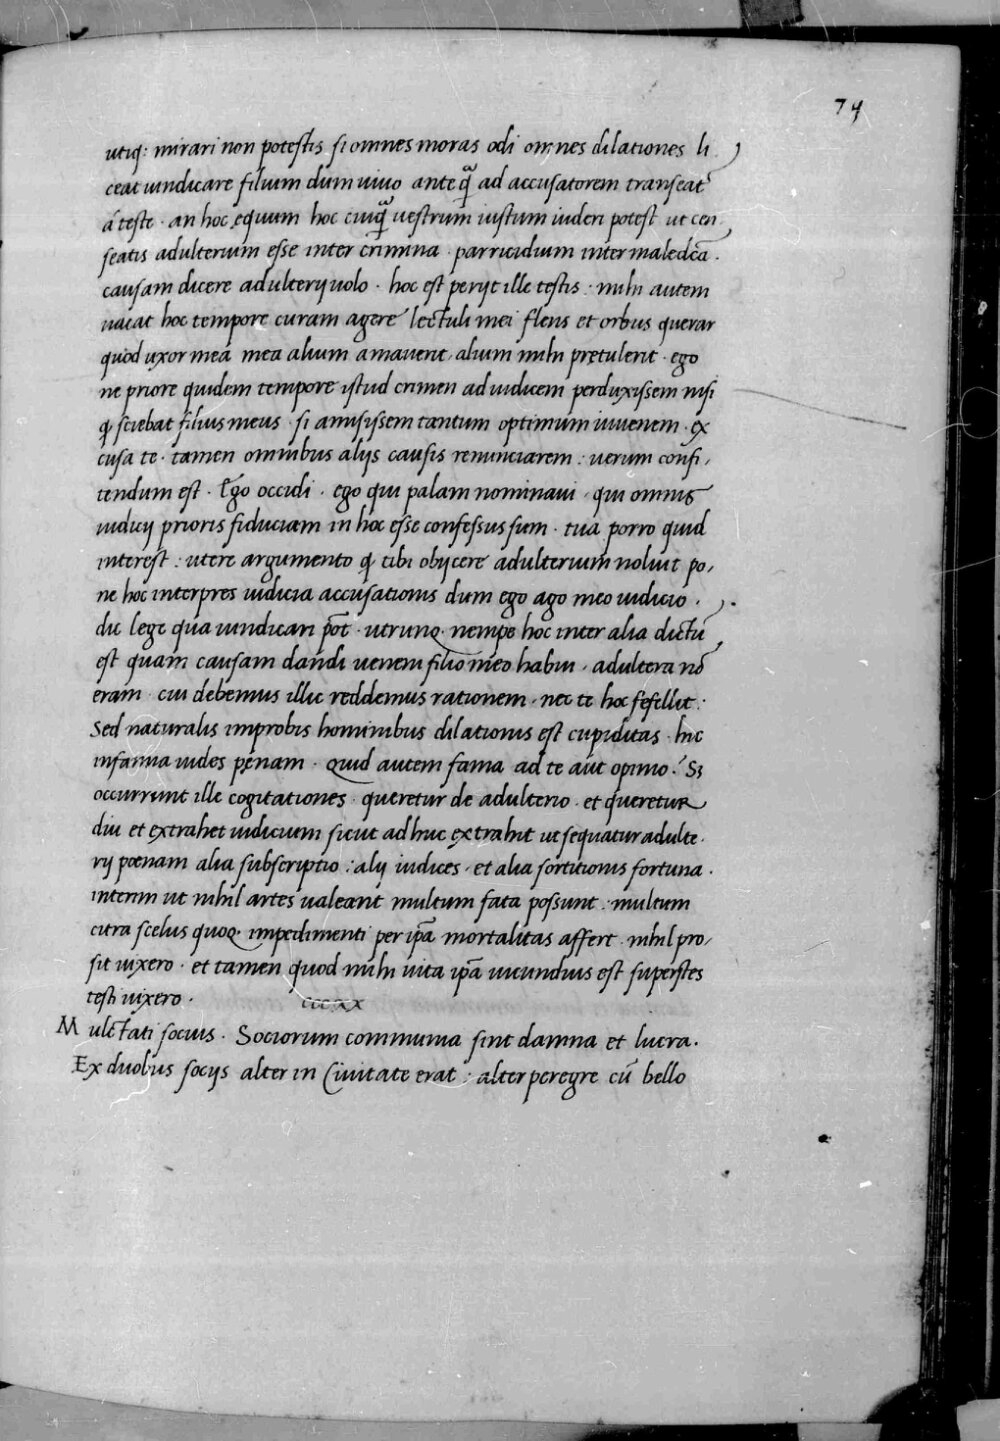 74
utiq: mirari non potestis si omnes moras odi omnes dilationes li
ceat uindicare filium dum uiuo ante q̃ ad accusatorem transeat
á teste · an hoc ęquum hoc cuiq̃ uestrum iustum uideri potest ut cen
seatis adulterium esse inter crimina · parricidium inter maledcã ·
causam dicere adulterij uolo · hoc est perijt ille testis : mihi autem
uacat hoc tempore curam agere lectuli mei flens et orbus querar
quod uxor mea mea alium amauerit, alium mihi pretulerit · ego
ne priore quidem tempore istud crimen ad iudicem perduxissem nisi
q̃ sciebat filius meus · si amisissem tantum optimum iuuenem · ex
cusa te · tamen omnibus alijs causis renunciarem : uerum confi,
tendum est · Ego occidi · ego qui palam nominaui · qui omnis
iudicij prioris fiduciam in hoc esse confessus sum · tua porro quid
interest : utere argumento q̃ tibi obijcere adulterium noluit po,
ne hoc interpres iudicia accusationis dum ego ago meo iudicio ·
dic lege qua uindicari põt · utrunq · nempe hoc inter alia dictũ
est quam causam dandi uenem filio meo habui · adultera nõ
eram · cui debemus illic reddemus rationem · nec te hoc fefellit :
Sed naturalis improbis hominibus dilationis est cupiditas · hic
infamia uides pęnam · quid autem fama ad te aut opimo : Si
occurrunt ille cogitationes · queretur de adulterio · et queretur
diu et extrahet iudicium sicut adhuc extrahit ut sequatur adulte ·
rij poenam alia subscriptio : alij iudices · et alia sortitionis fortuna ·
interim ut nihil artes ualeant multum fata possunt : multum
citra scelus quoq · impedimenti per ipã mortalitas affert · nihil pro,
sit uixero · et tamen quod mihi uita ipã iucundius est superstes
testi uixero ·
cccxx
Mulctati socius · Sociorum communia sint damna et lucra ·
Ex duobus socijs alter in Ciuitate erat : alter peregre cũ bello